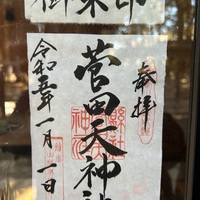 御朱印
奉拝
菅田天神社
令和五年一月一日